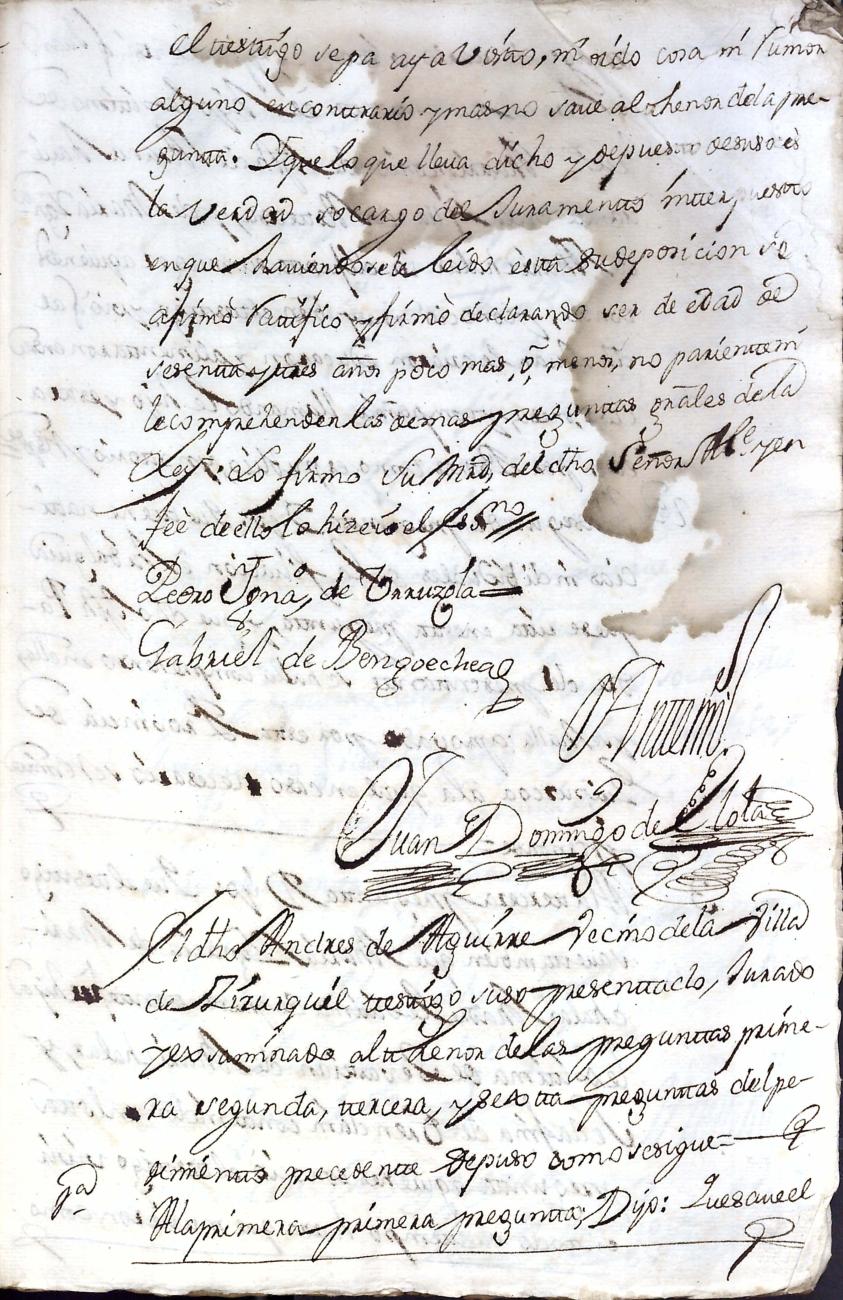 el testigo sepa aya visto, ni oido cosa ni rumor
alguno en contrario y mas no save al thenor de la pre-
gunta. Y que lo que lleva dicho y depuesto desuso es
la verdad so cargo del Juramento interpuesto
en que haviendosele leido esta su deposicion se
afirmò ratifico y firmò declarando ser de edad de
sesenta y tres años poco mas, ò menos, no pariente ni
le comprehenden las demas preguntas gnãles de la
Ley. Lo firmo su Mrd, del dho Señor Alle y en
feè de ello lo hize io el Essno
Pedro Ignaº, de Urruzola
Gabriel de Bengoechea
Ante mi
Juan Domingo de Elola
El dho Andres de Aguirre Vecino de la Villa
de Zizurquil testigo suso presentado, Jurado
y exsaminado al thenor de las preguntas prime-
ra segunda, tercera, y sexta preguntas del pe-
dimento precedente depuso como se sigue
1ª
A la primera primera pregunta; Dijo: Que save el